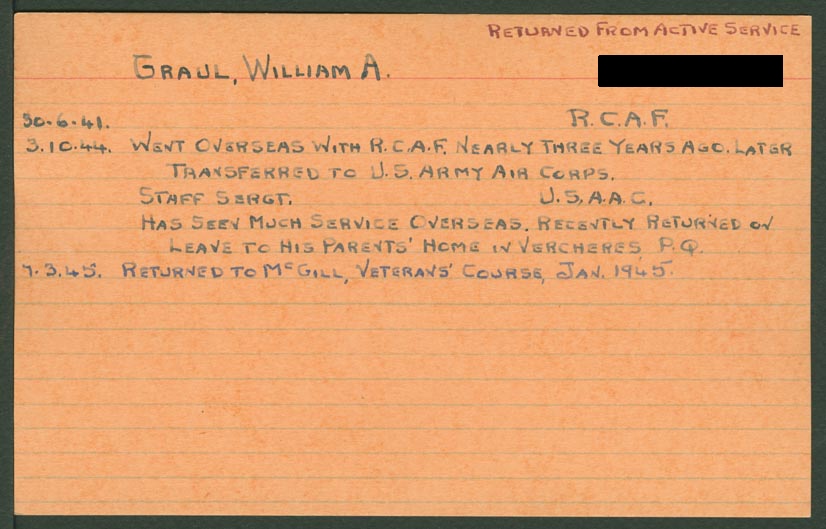 RETURNED FROM ACTIVE SERVICE
GRAUL, WILLIAM A.
30.6.41. R.C.A.F.
3.10.44. WENT OVERSEAS WITH R.C.A.F. NEARLY THREE YEARS AGO. LATER
TRANSFERRED TO U.S. ARMY AIR CORPS.
STAFF SERGT. U.S.A.A.C.
HAS SEEN MUCH SERVICE OVERSEAS. RECENTLY RETURNED ON
LEAVE TO HIS PARENTS' HOME IN VERCHERES, P.Q.
7.3.45. RETURNED TO MCGILL, VETERANS' COURSE, JAN. 1945.